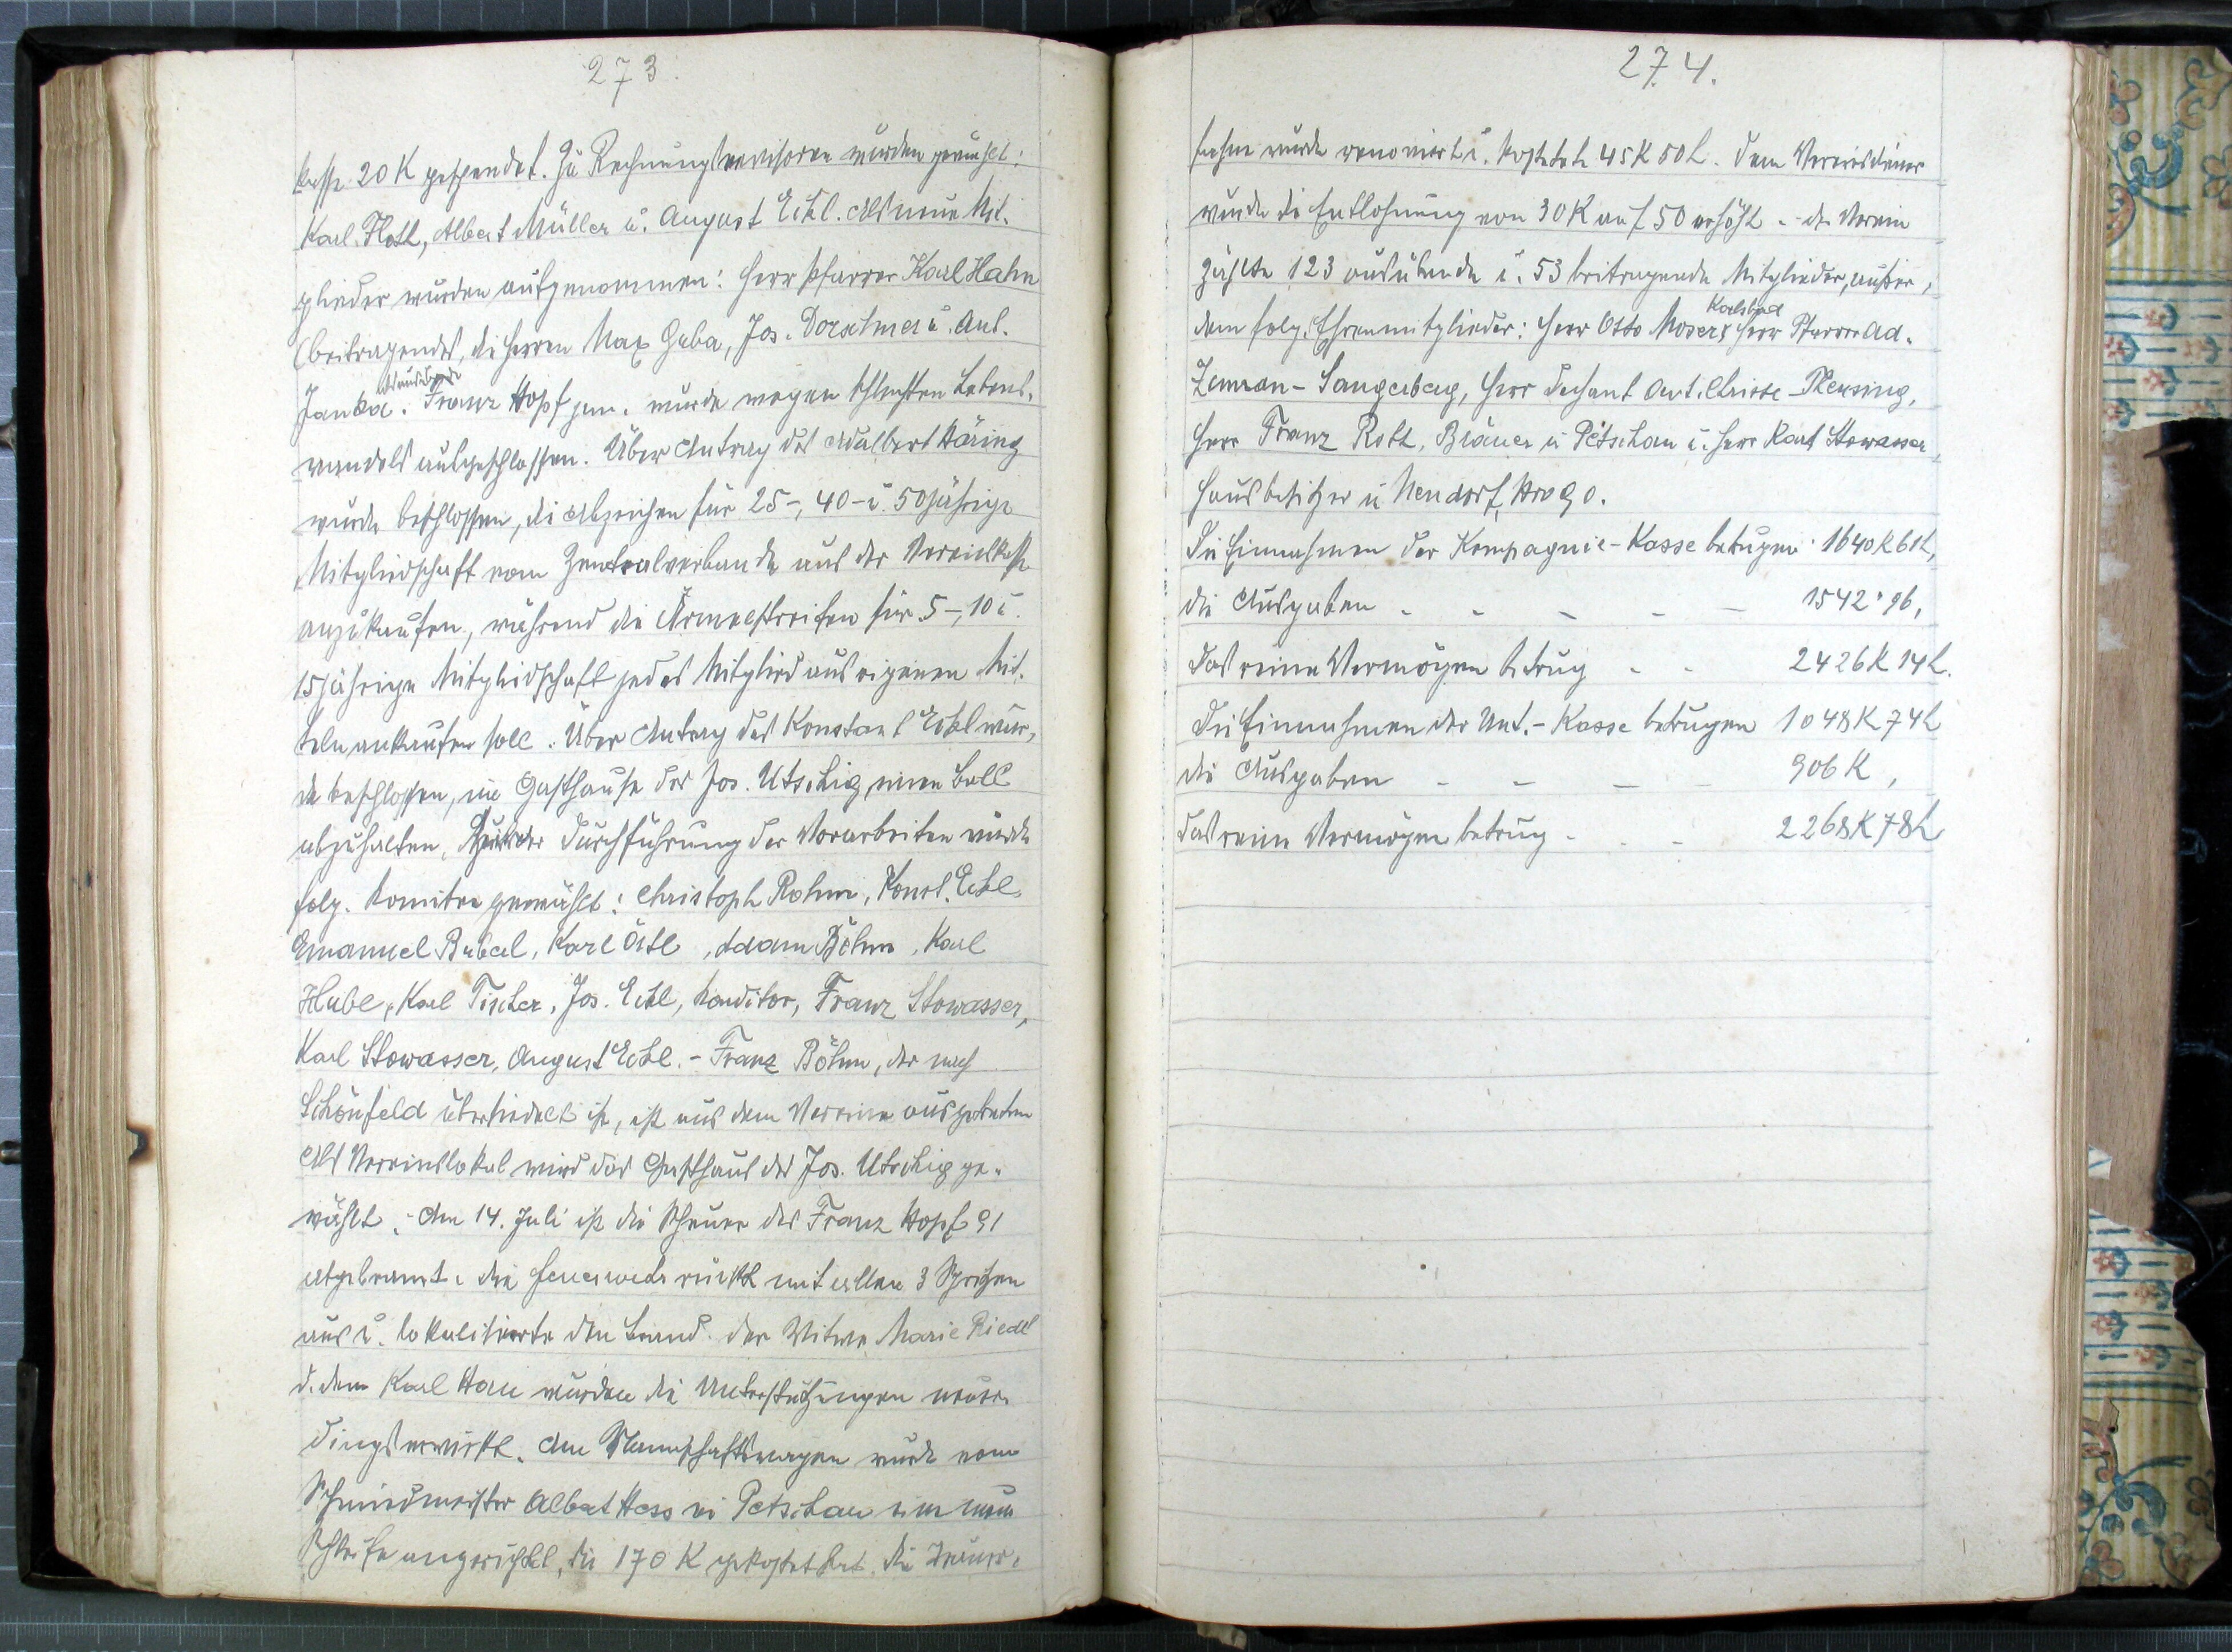 273.
kasse 20 K gespendet. Zu Rechnungsrevisoren wurden gewählt:
Karl Floth, Albert Müller u. August Eckl. Als neue Mit-
glieder wurden aufgenommen: Herr Pfarrer Karl Hahn
(beitragendes, die Herren Max Gaba, Jos. Dorschner u. Ant.
als ausübende
Janka. Franz Hopf jun. wurde wegen schlechten Lebens-
wandels ausgeschlossen. Über Antrag des Adalbert Häring
wurde beschlossen, die Abzeichen für 25-, 40- u. 50jährige
Mitgliedschaft vom Zentralverbande aus der Vereinskasse
anzukaufen, während die Ärmelstreifen für 5-, 10 u.
15jährige Mitgliedschaft jedes Mitglied aus eigenen Mit-
teln ankaufen soll. Über Antrag des Konstant Eckl wur-
de beschlossen, im Gasthause des Jos. Utschig einen Ball
abzuhalten, Durchführung der Vorarbeiten wurde
folg. Komitee gewählt: Christoph Rohm, Konst. Eckl,
Emanuel Bubal, Karl Örtl, Adam Böhm, Karl
Hubl, Karl Fischer, Jos. Eckl, Konditor, Franz Stowasser,
Karl Stowasser, August Eckl. - Franz Böhm, der nach
Schönfeld übersiedelt ist, ist aus dem Vereine ausgetreten
Als Vereinslokal wird das Gasthaus des Jos. Utschig ge-
wählt. - Am 14. Juli ist die Scheuer des Franz Hopf 91
abgebrannt. Die Feuerwehr rückte mit allen 3 Spritzen
aus u. lokalisierte den Brand. Der Witwe Marie Riedl
u. dem Karl Hau wurden die Unterstützungen neuer-
dings erwirkt. Am Mannschaftswagen wurde vom
Schmiedmeister Albert Hess in Petschau eine neue
Schleife angerichtet, die 170 K gekostet hat. Die
274.
fahne wurde renoviert u. kostete 45 K 50 h. Dem Vereinsdiener
wurde die Entlohnung von 30 K auf 50 erhöht. - Der Verein
zählte 123 ausübende u. 53 beitragende Mitglieder, außer-
Karlsbad
dem folg. Ehrenmitglieder: Herr Otto Moser, Herr Pfarrer Ad.
Zeman - Sangerberg, Herr Dechant Ant. - Plensing,
Herr Franz Roth, Bräuer in Petschau u. Herr Karl Stowasser,
Hausbesitzer in Neudorf, Nro 90.
Die Einnahmen der Kompagnie-Kasse betrugen 1640 K 61 h,
die Ausgaben - - - - - 1542 " 96,
das reine Vermögen betrug - - 2426 K 14 h.
Die Einnahmen der Unt.-Kasse betrugen 1048 K 74 h
die Ausgaben - - - - 906 K,
das reine Vermögen betrug - - - 2268 K 78 h